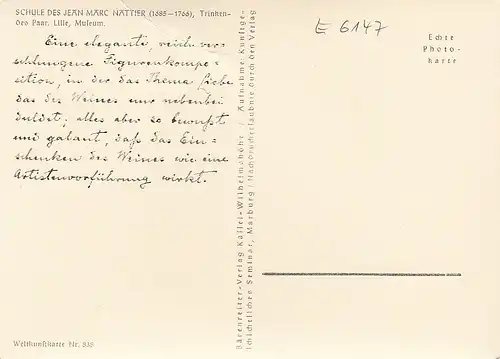 SCHULE DES JEAN MARC NATTIER (1685–1766), Trinken-
des Paar. Lille, Museum.
Eine elegante reich ver-
schlungene Figurenkompo-
sition, in der das Thema Liebe
das des Weines nur nebenbei
duldet; alles aber so bewußt
und galant, daß das Ein-
schenken des Weines wie eine
Artistenvorführung wirkt.
Weltkunstkarte Nr. 835
Bärenreiter-Verlag Kassel-Wilhelmshöhe / Aufnahme Kunstge-
schichtliches Seminar, Marburg / Nachdruckerlaubnis durch den Verlag
E 6147
Echte
Photo-
karte